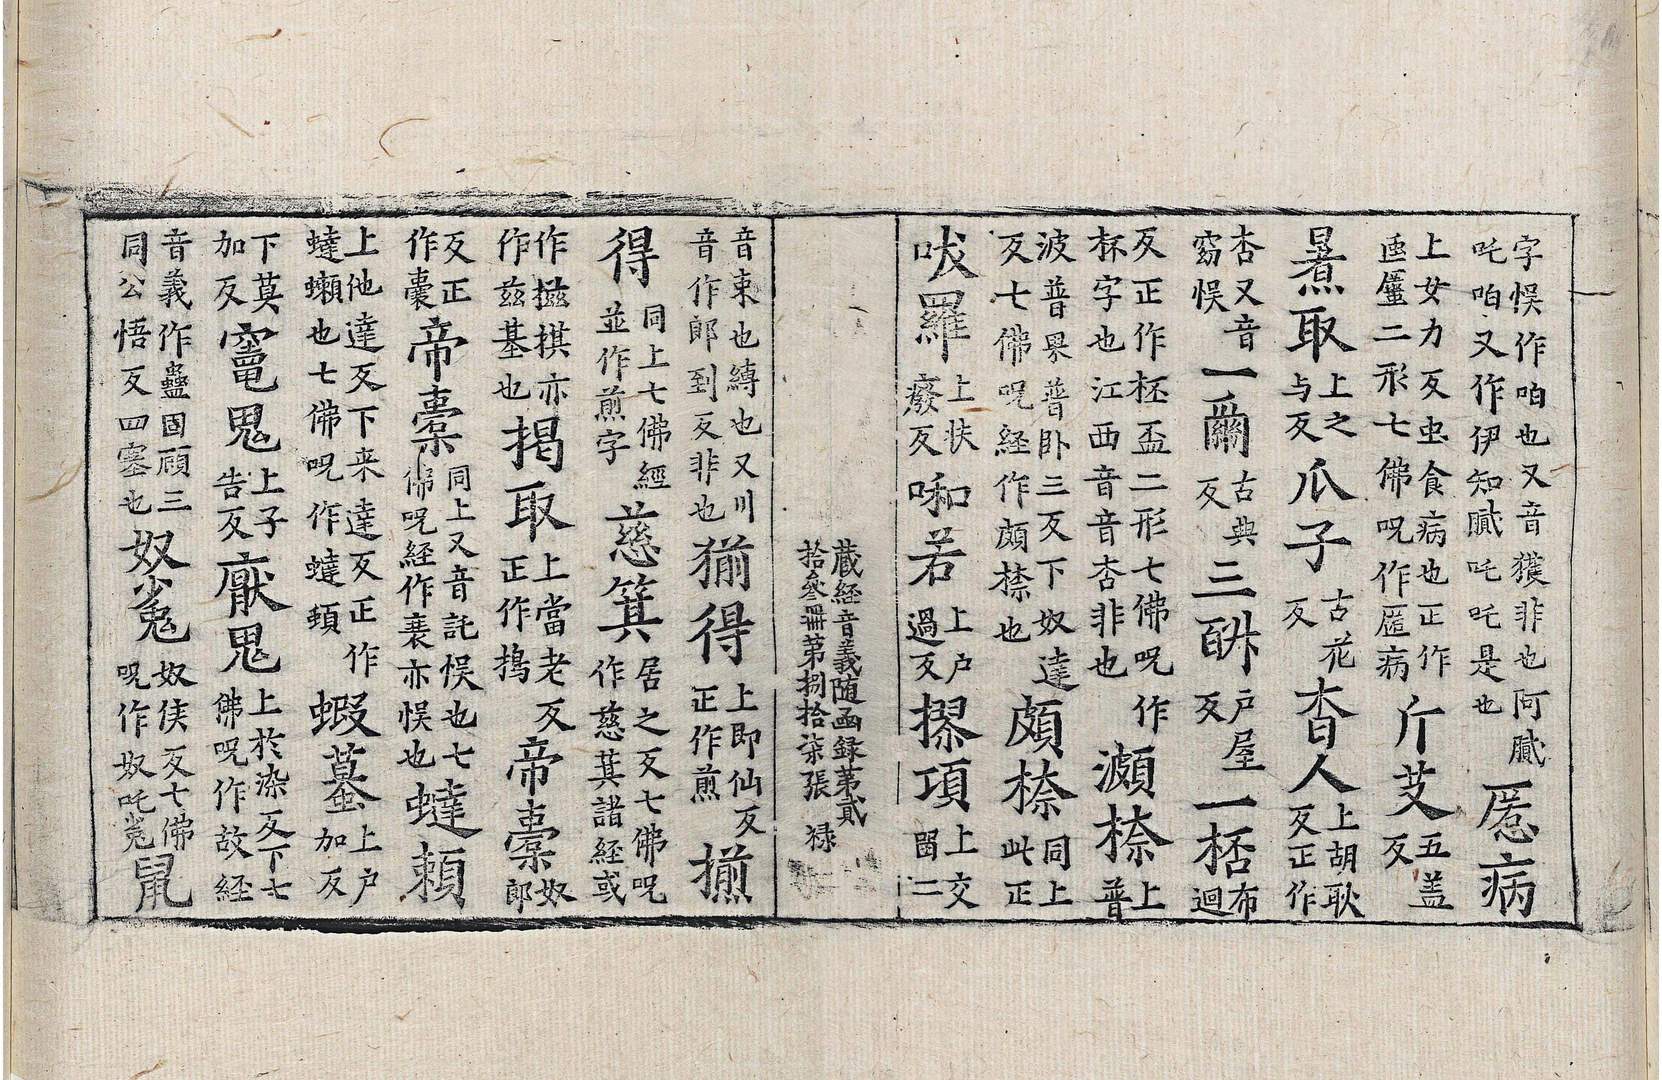 字悮作咱也又音獲非也阿膩
吒咱又作伊知膩吒吒是也
㞾病
上女力反虫食病也正作
𠥷䘌二形七佛呪作匿病
斤芠
五盖
反
㬠取
上之
与反
爪子
古花
反
杳人
上胡耿
反正作
杏又音
窈悮
一薾
古典
反
三䣧
戶屋
反
一桰
布
迴
反正作柸盃二形七佛呪作
杯字也江西音音杏非也
瀕㮈
上
普
波普界普卧三反下奴達
反七佛呪経作頗㮏也
頗㮈
同上
此正
吠羅
上扶
癈反
啝若
上户
過反
摎項
上交
囶二
蔵経音義随函録第貳
拾叄冊第捌拾柒張 禄
音束也縳也又川
音作郎到反非也
猏得
上即仙反
正作煎
揃
得
同上七佛經
並作煎字
慈箕
居之反七佛呪
作慈萁諸經或
作㨱掑亦
作兹基也
揭取
上當老反
正作搗
帝槖
奴
郎
反正
作囊
帝槖
同上又音託悮也七
佛呪経作㐮亦悮也
蟽頼
上他達反下来達反正作
蟽蠏也七佛呪作蟽頼
蝦蟇
上户
加反
下莫
加反
竃鬼
上子
告反
厭鬼
上於染反下七
佛呪作故経
音義作蠱固顧三
同公悟反四塞也
奴㝹
奴侯反七佛
呪作奴吒㝹
鼠